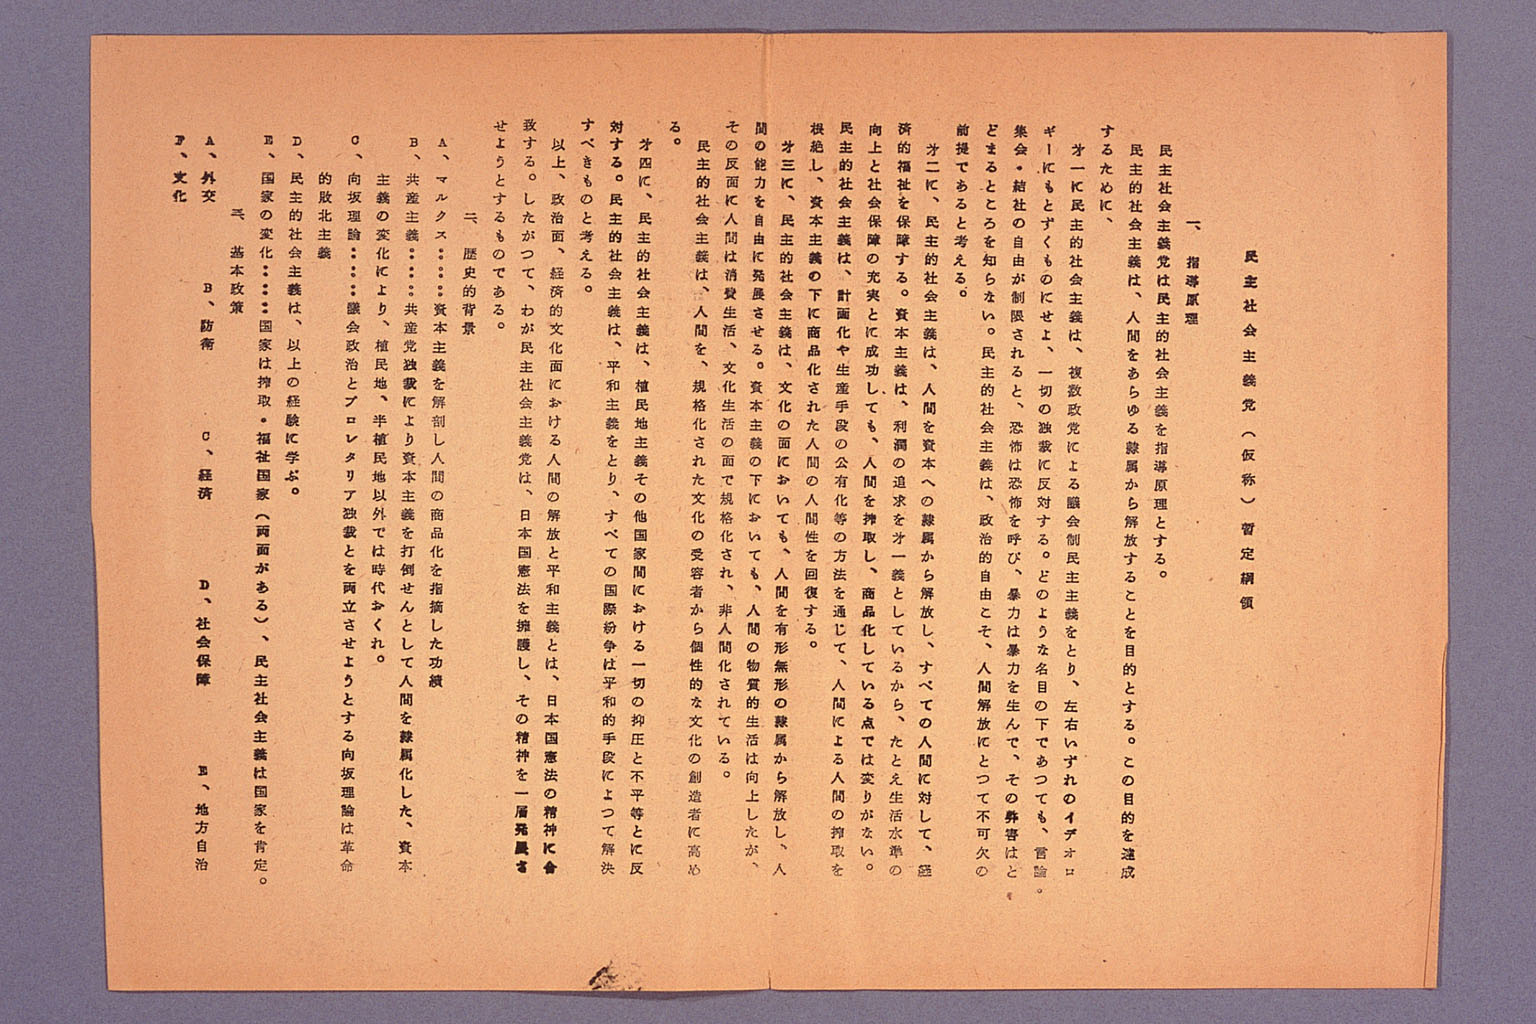 民主社会主義党（仮称）暫定綱領
一、指導原理
民主社会主義党は民主的社会主義を指導原理とする。
民主的社会主義は、人間をあらゆる隷属から解放することを目的とする。この目的を達成
するために、
才一に民主的社会主義は、複数政党による議会制民主主義をとり、左右いずれのイデオロ
ギーにもとずくものにせよ、一切の独裁に反対する。どのような名目の下であつても、言論。
集会・結社の自由が制限されると、恐怖は恐怖を呼び、暴力は暴力を生んで、その弊害はと
どまるところを知らない。民主的社会主義は、政治的自由こそ、人間解放にとつて不可欠の
前提であると考える。
才二に、民主的社会主義は、人間を資本への隷属から解放し、すべての人間に対して、経
済的福祉を保障する。資本主義は、利潤の追求を才一義としているから、たとえ生活水準の
向上と社会保障の充実とに成功しても、人間を搾取し、商品化している点では変りがない。
民主的社会主義は、計画化や生産手段の公有化等の方法を通じて、人間による人間の搾取を
根絶し、資本主義の下に商品化された人間の人間性を回復する。
才三に、民主的社会主義は、文化の面においても、人間を有形無形の隷属から解放し、人
間の能力を自由に発展させる。資本主義の下においても、人間の物質的生活は向上したが、
その反面に人間は消費生活、文化生活の面で規格化され、非人間化されている。
民主的社会主義は、人間を、規格化された文化の受容者から個性的な文化の創造者に高め
る。
才四に、民主的社会主義は、植民地主義その他国家間における一切の抑圧と不平等とに反
対する。民主的社会主義は、平和主義をとり、すべての国際紛争は平和的手段によつて解決
すべきものと考える。
以上、政治面、経済的文化面における人間の解放と平和主義とは、日本国憲法の精神に合
致する。したがつて、わが民主社会主義党は、日本国憲法を擁護し、その精神を一層発展さ
せようとするものである。
二、歴史的背景
A、マルクス・・・・・資本主義を解剖し人間の商品化を指摘した功績
B、共産主義・・・・・共産党独裁により資本主義を打倒せんとして人間を隷属化した、資本
主義の変化により、植民地、半植民地以外では時代おくれ。
C、向坂理論・・・・・議会政治とプロレタリア独裁とを両立させようとする向坂理論は革命
的敗北主義
D、民主的社会主義は、以上の経験に学ぶ。
E、国家の変化・・・・・国家は搾取・福祉国家（両面がある）、民主社会主義は国家を肯定。
三、基本政策
A、外交　B、防衛　C、経済　D、社会保障　E、地方自治
F、文化